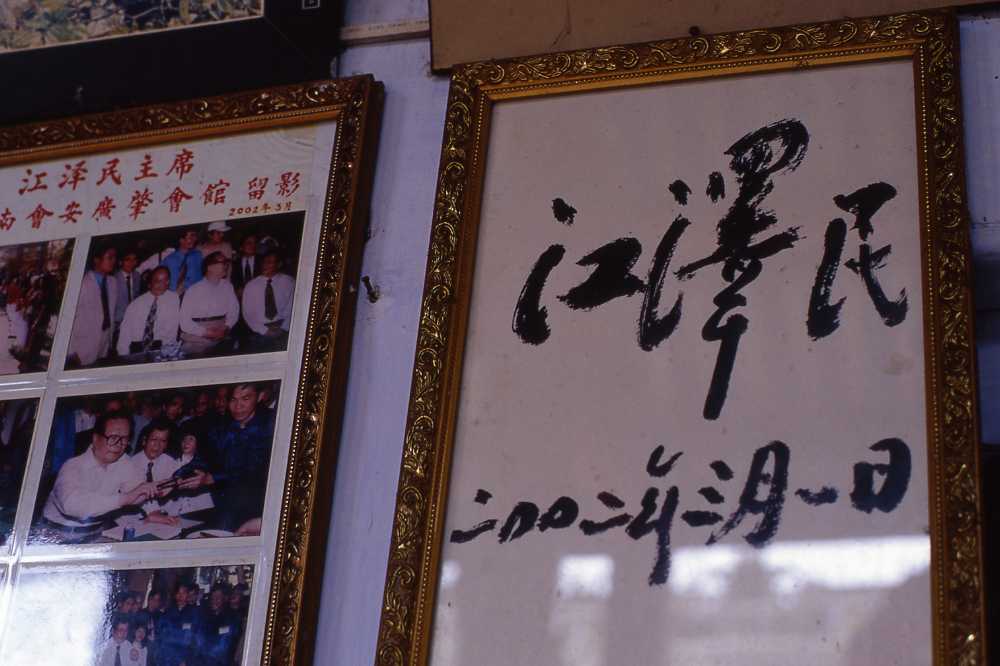 江泽民主席
南會安廣肇會館 留影
2002年3月
江澤民
二00二年三月一日